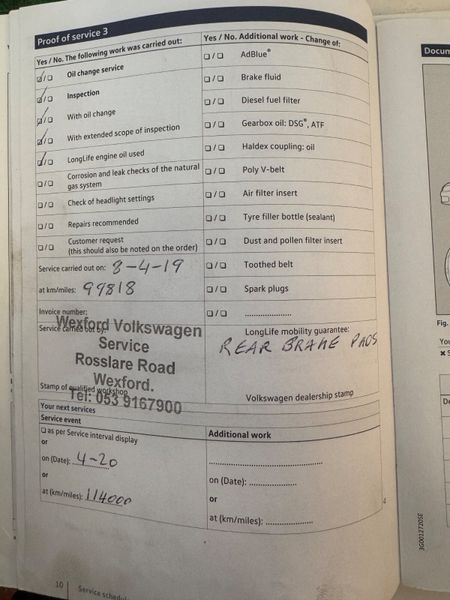 Proof of service 3
Yes / No. The following work was carried out:
Oil change service
Inspection
With oil change
With extended scope of inspection
LongLife engine oil used
Corrosion and leak checks of the natural
gas system
Check of headlight settings
Repairs recommended
Customer request
(this should also be noted on the order)
Service carried out on: 8-4-19
at km/miles: 99818
Invoice number:
Service carried out by:
Wexford Volkswagen
Service
Rosslare Road
Wexford.
Tel: 053 9167900
Stamp of qualified workshop
Yes / No. Additional work - Change of:
AdBlue®
Brake fluid
Diesel fuel filter
Gearbox oil: DSG®, ATF
Haldex coupling: oil
Poly V-belt
Air filter insert
Tyre filler bottle (sealant)
Dust and pollen filter insert
Toothed belt
Spark plugs
....................
LongLife mobility guarantee:
REAR BRAKE PADS
Volkswagen dealership stamp
Your next services
Service event
as per Service interval display
or
on (Date): 4-20
or
at (km/miles): 114000
Additional work
....................
on (Date): ....................
or
at (km/miles): ....................
10
Service schedu
Docum
Fig.
You
3G0012720SE